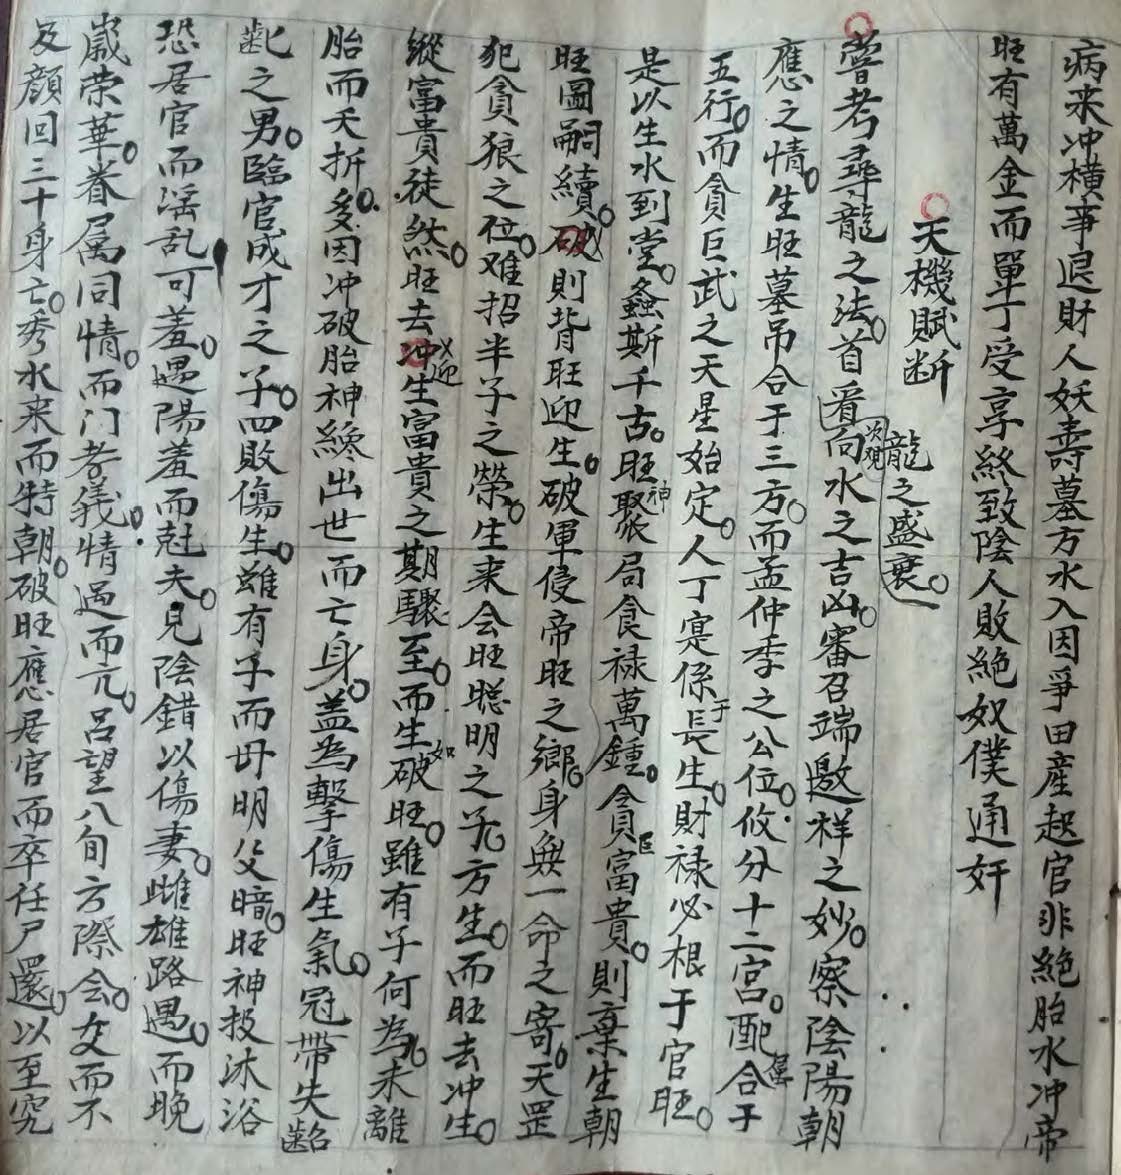 病来冲横事退財人妖壽墓方水入因爭田産起官非絶胎水冲帝
旺有萬金而單丁受享終致陰人敗絶奴僕通奸
天機賦断
龍之盛衰
嘗考尋龍之法首看次观向水之吉凶審召端邀祥之妙察陰陽朝
應之情生旺墓吊合于三方而孟仲季之公位攸分十二宫配合于
五行而貪巨武之天星始定人丁寔係于長生財禄必根于官旺
是以生水到堂螽斯千古旺神聚局食禄萬鍾貪巨富貴則棄生朝
旺圖嗣續破則背旺迎生破軍侵帝旺之鄉身無一命之寄天罡
犯貪狼之位难招半子之榮生来会旺聪明之子方生而旺去冲生
縱富貴徒然旺去冲迎生富貴之期驟至而生如破旺雖有子何為未離
胎而夭折多因冲破胎神纔出世而亡身盖為擊傷生氣冠帶失齠
齔之男臨官成才之子四敗傷生雖有子而毌明父暗旺神投沐浴
恐居官而滛乱可羞遇陽羞而尅夫見陰錯以傷妻雌雄路遇而晚
嵗荣華眷属同情而门孝義情過而亢吕望八旬方際会交而不
及顔回三十身亡秀水来而特朝破旺應居官而卒任尸還以至究